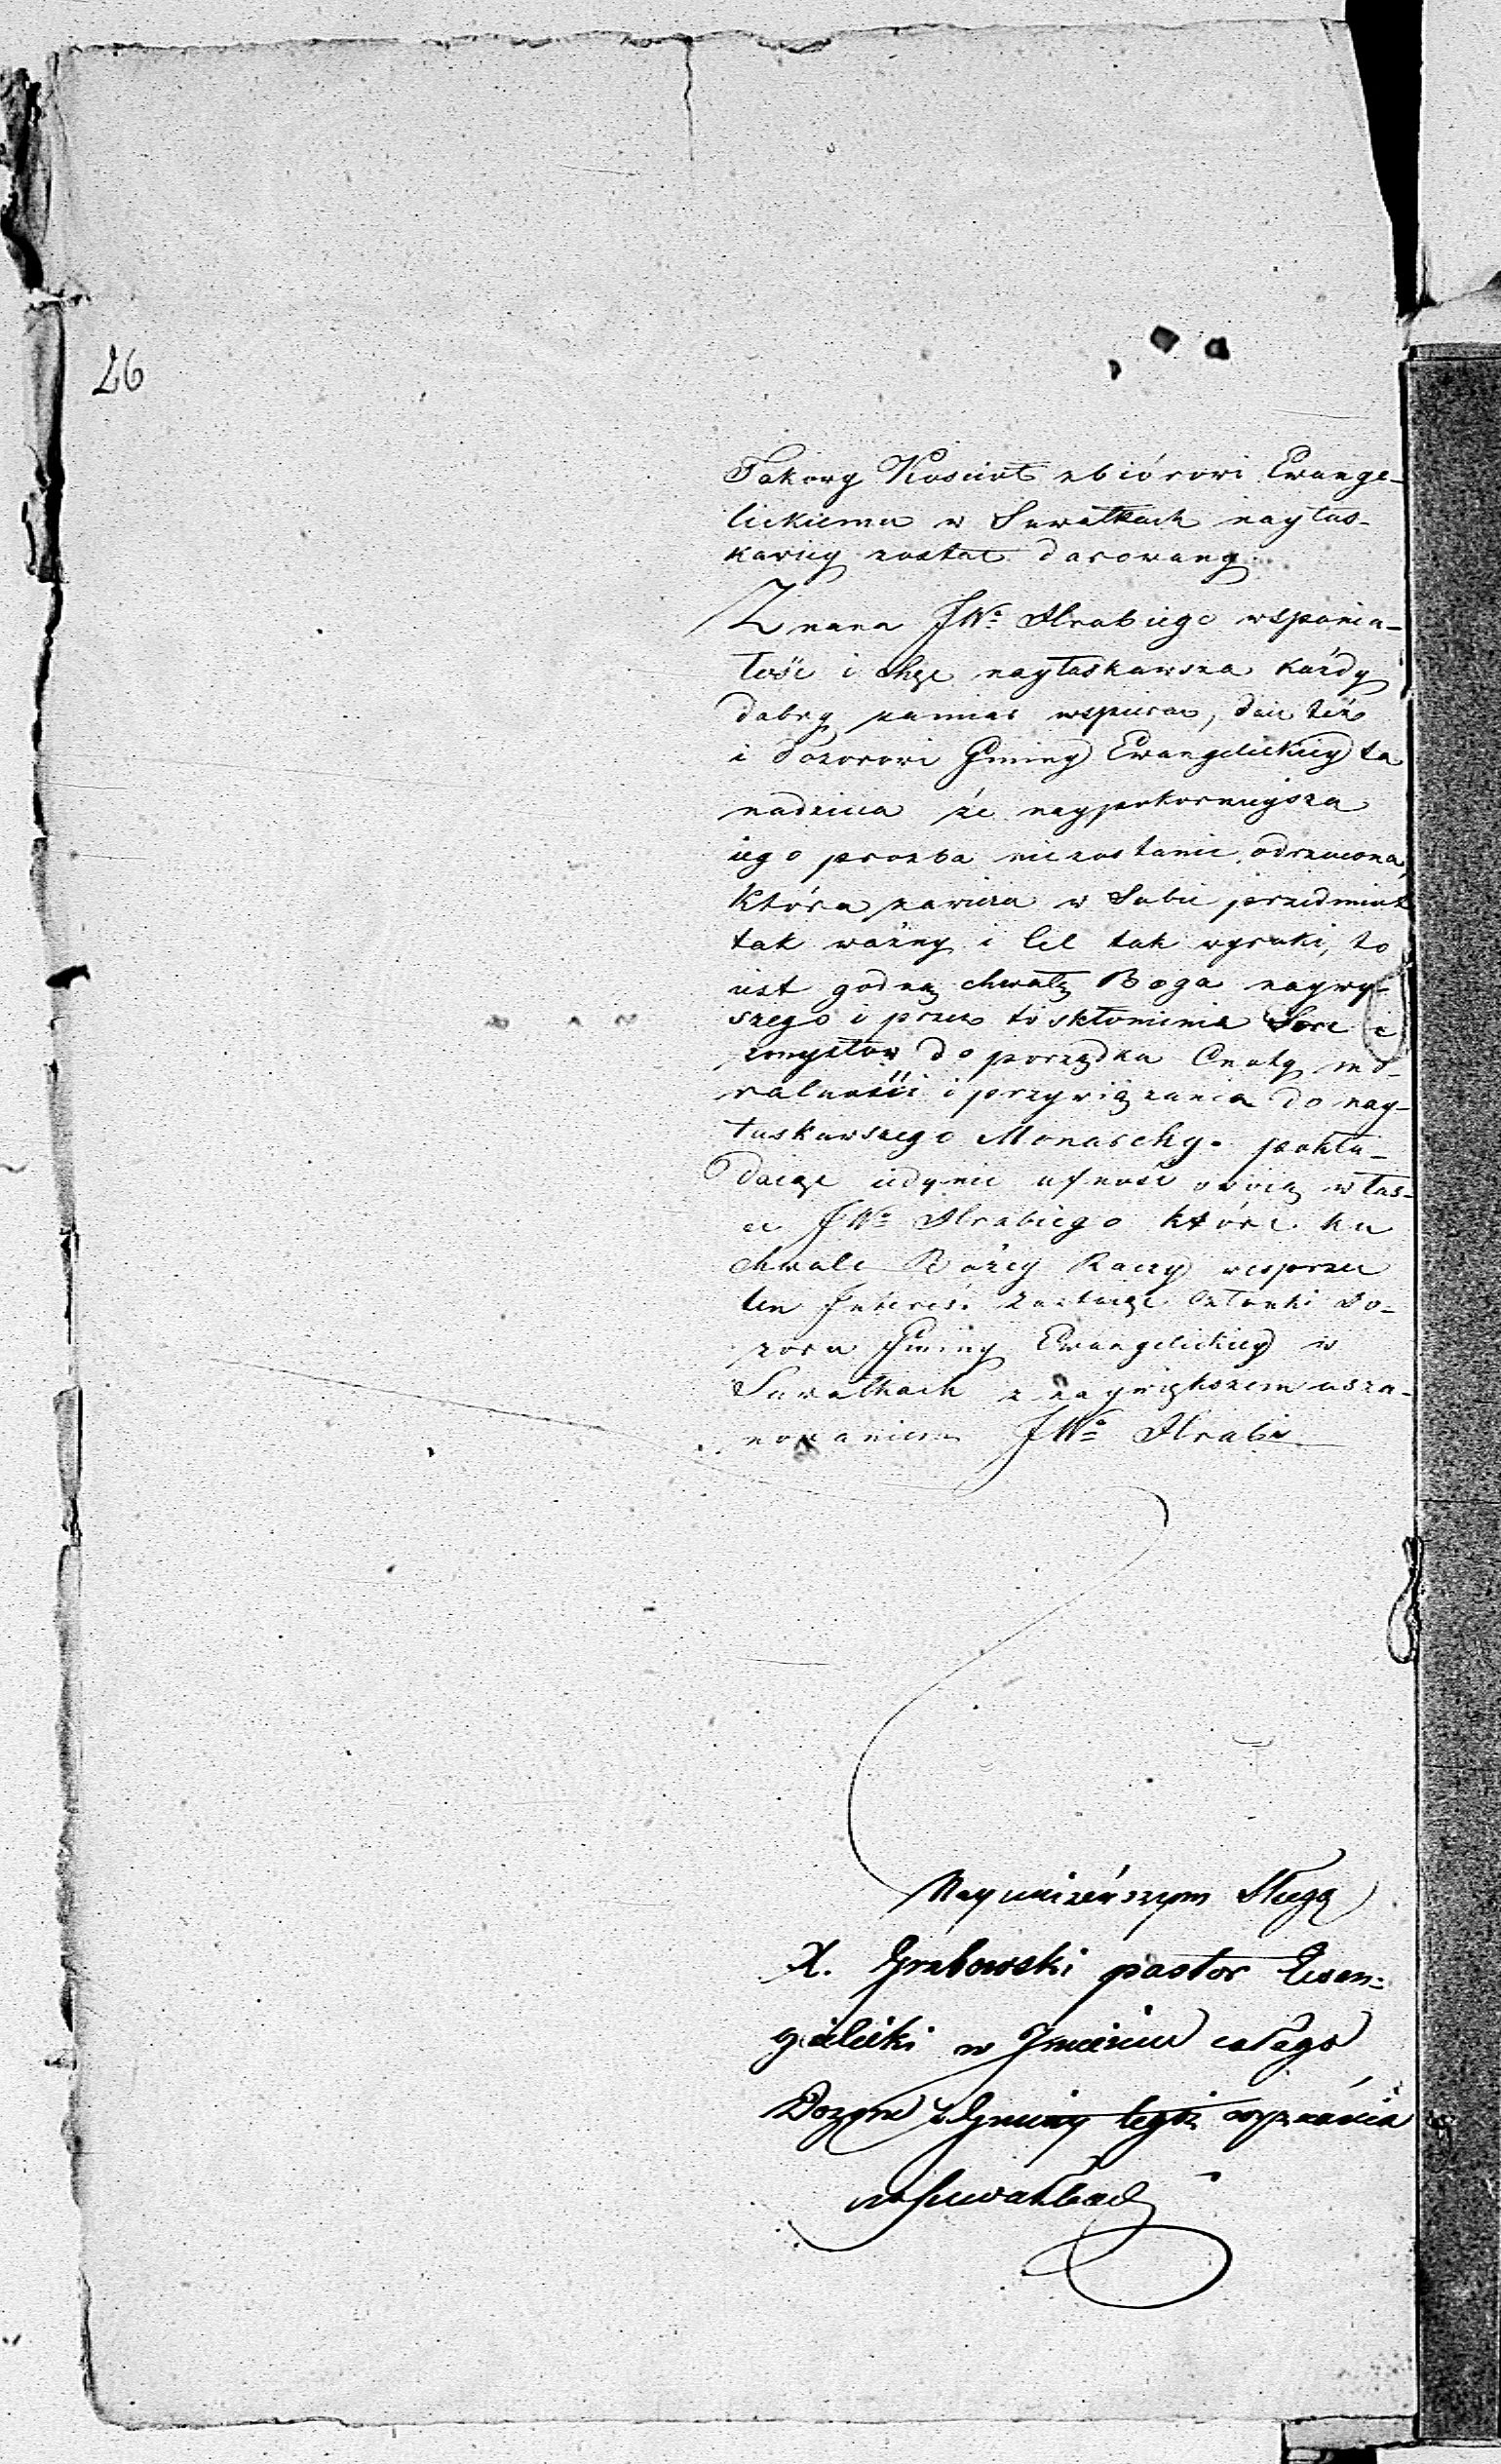 26
Takowy Koscioł zbiórowi Ewange-
lickiemu w Suwałkach nayłas-
kawiey został darowany.
Znana JWo Hrabiego wspania-
łość i chęć nayłaskawsza każdy
dobry zamiar wspierac, daie też
i Dozorowi Gminy Ewangelickiey ta
nadzieia że naypokornieysza
iego prozba niezostanie odrzucona,
która zawiera w Sobie przedmiot
tak ważny i Cel tak wysoki, to
iest godną chwałę Boga naywy-
szego i przez to skłonienie Serc i
zmysłow do porządku Cnoty mo-
ralności i przywiązania do nay-
łaskawszego Monarchy. pokła-
daiąc iedynie ufność swoię w łas-
ce JWo Hrabiego które ku
chwale Bożey Raczy wesprzeć
ten Interes. Zostaiąc Członki Do-
zoru Gminy Ewangelickiey w
Suwałkach z naywiększem usza-
nowaniem JWo Hrabi
Nayuniżeńszym Sługą
X. Grabowski pastor Ewan-
gielicki w Imieniu całego
Dozoru i Gminy tegoż wyznania
w Suwałkach